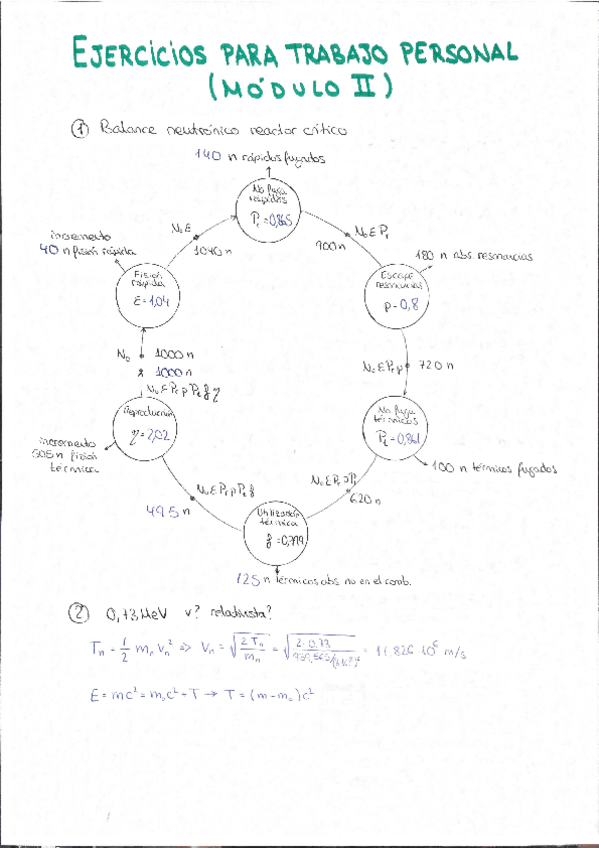 EJERCICIOS PARA TRABAJO PERSONAL
(MÓDULO II)
① Balance neutrónico reactor crítico
140 n rápidos fugados
No fuga
rápidos
Pᵣ = 0,865
N₀ε
1040 n
900 n
N₀εPᵣ
incremento
40 n fisión rápida
180 n abs. resonancias
Fisión
rápida
ε = 1,04
Escape
resonancias
p = 0,8
N₀
1000 n
1000 n
N₀εPᵣp
720 n
N₀εPᵣpPₜfη
Reproducción
η = 2,02
No fuga
térmicos
Pₜ = 0,861
incremento
505 n fisión
térmica
100 n térmicos fugados
N₀εPᵣpPₜf
495 n
N₀εPᵣpPₜ
620 n
Utilización
térmica
f = 0,799
125 n térmicos abs. no en el comb.
② 0,73 MeV v? relativista?
Tₙ = 1/2 mₙ vₙ² => vₙ = √(2 Tₙ / mₙ) = √(2 · 0.73 / 939,565/(3·10⁸)²) = 11.826 · 10⁶ m/s
E = mc² = m₀c² + T → T = (m - m₀)c²